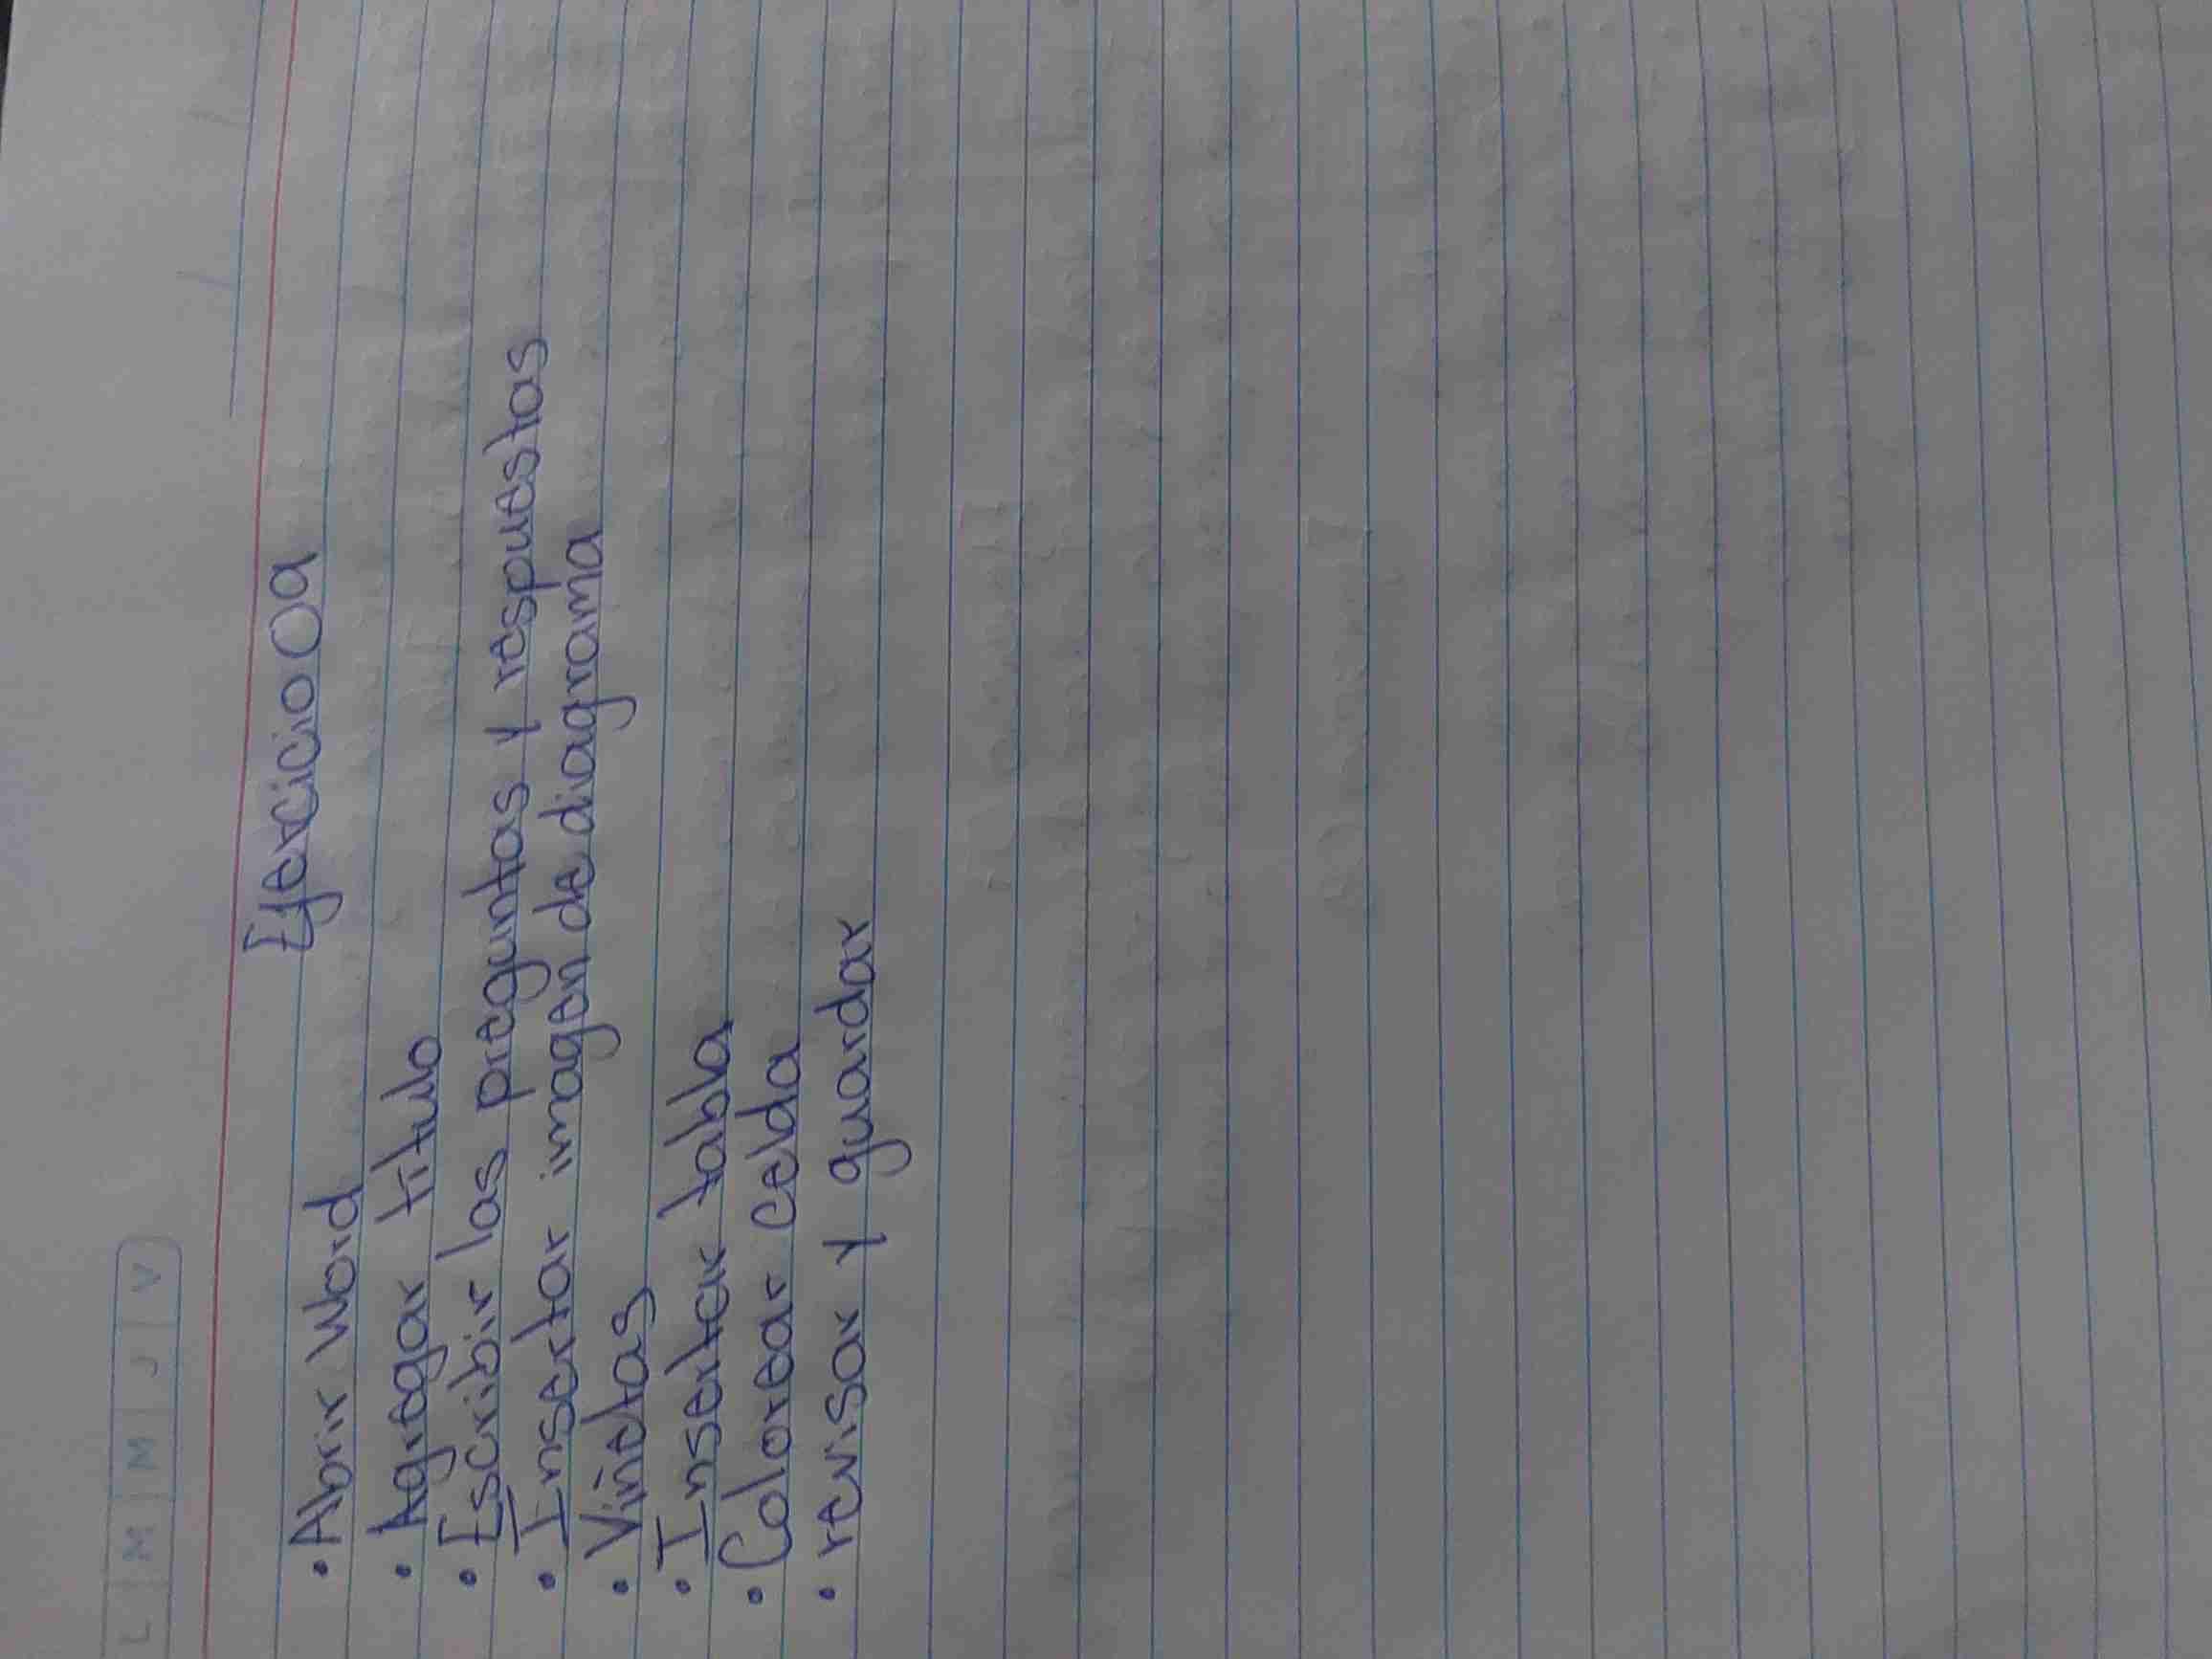 L M M J V
Ejercicio 0a
• Abrir Word
• Agregar titulo
• Escribir las preguntas y respuestas
• Insertar imagen de diagrama
• Viñetas
• Insertar tabla
• Colorear celda
• revisar y guardar